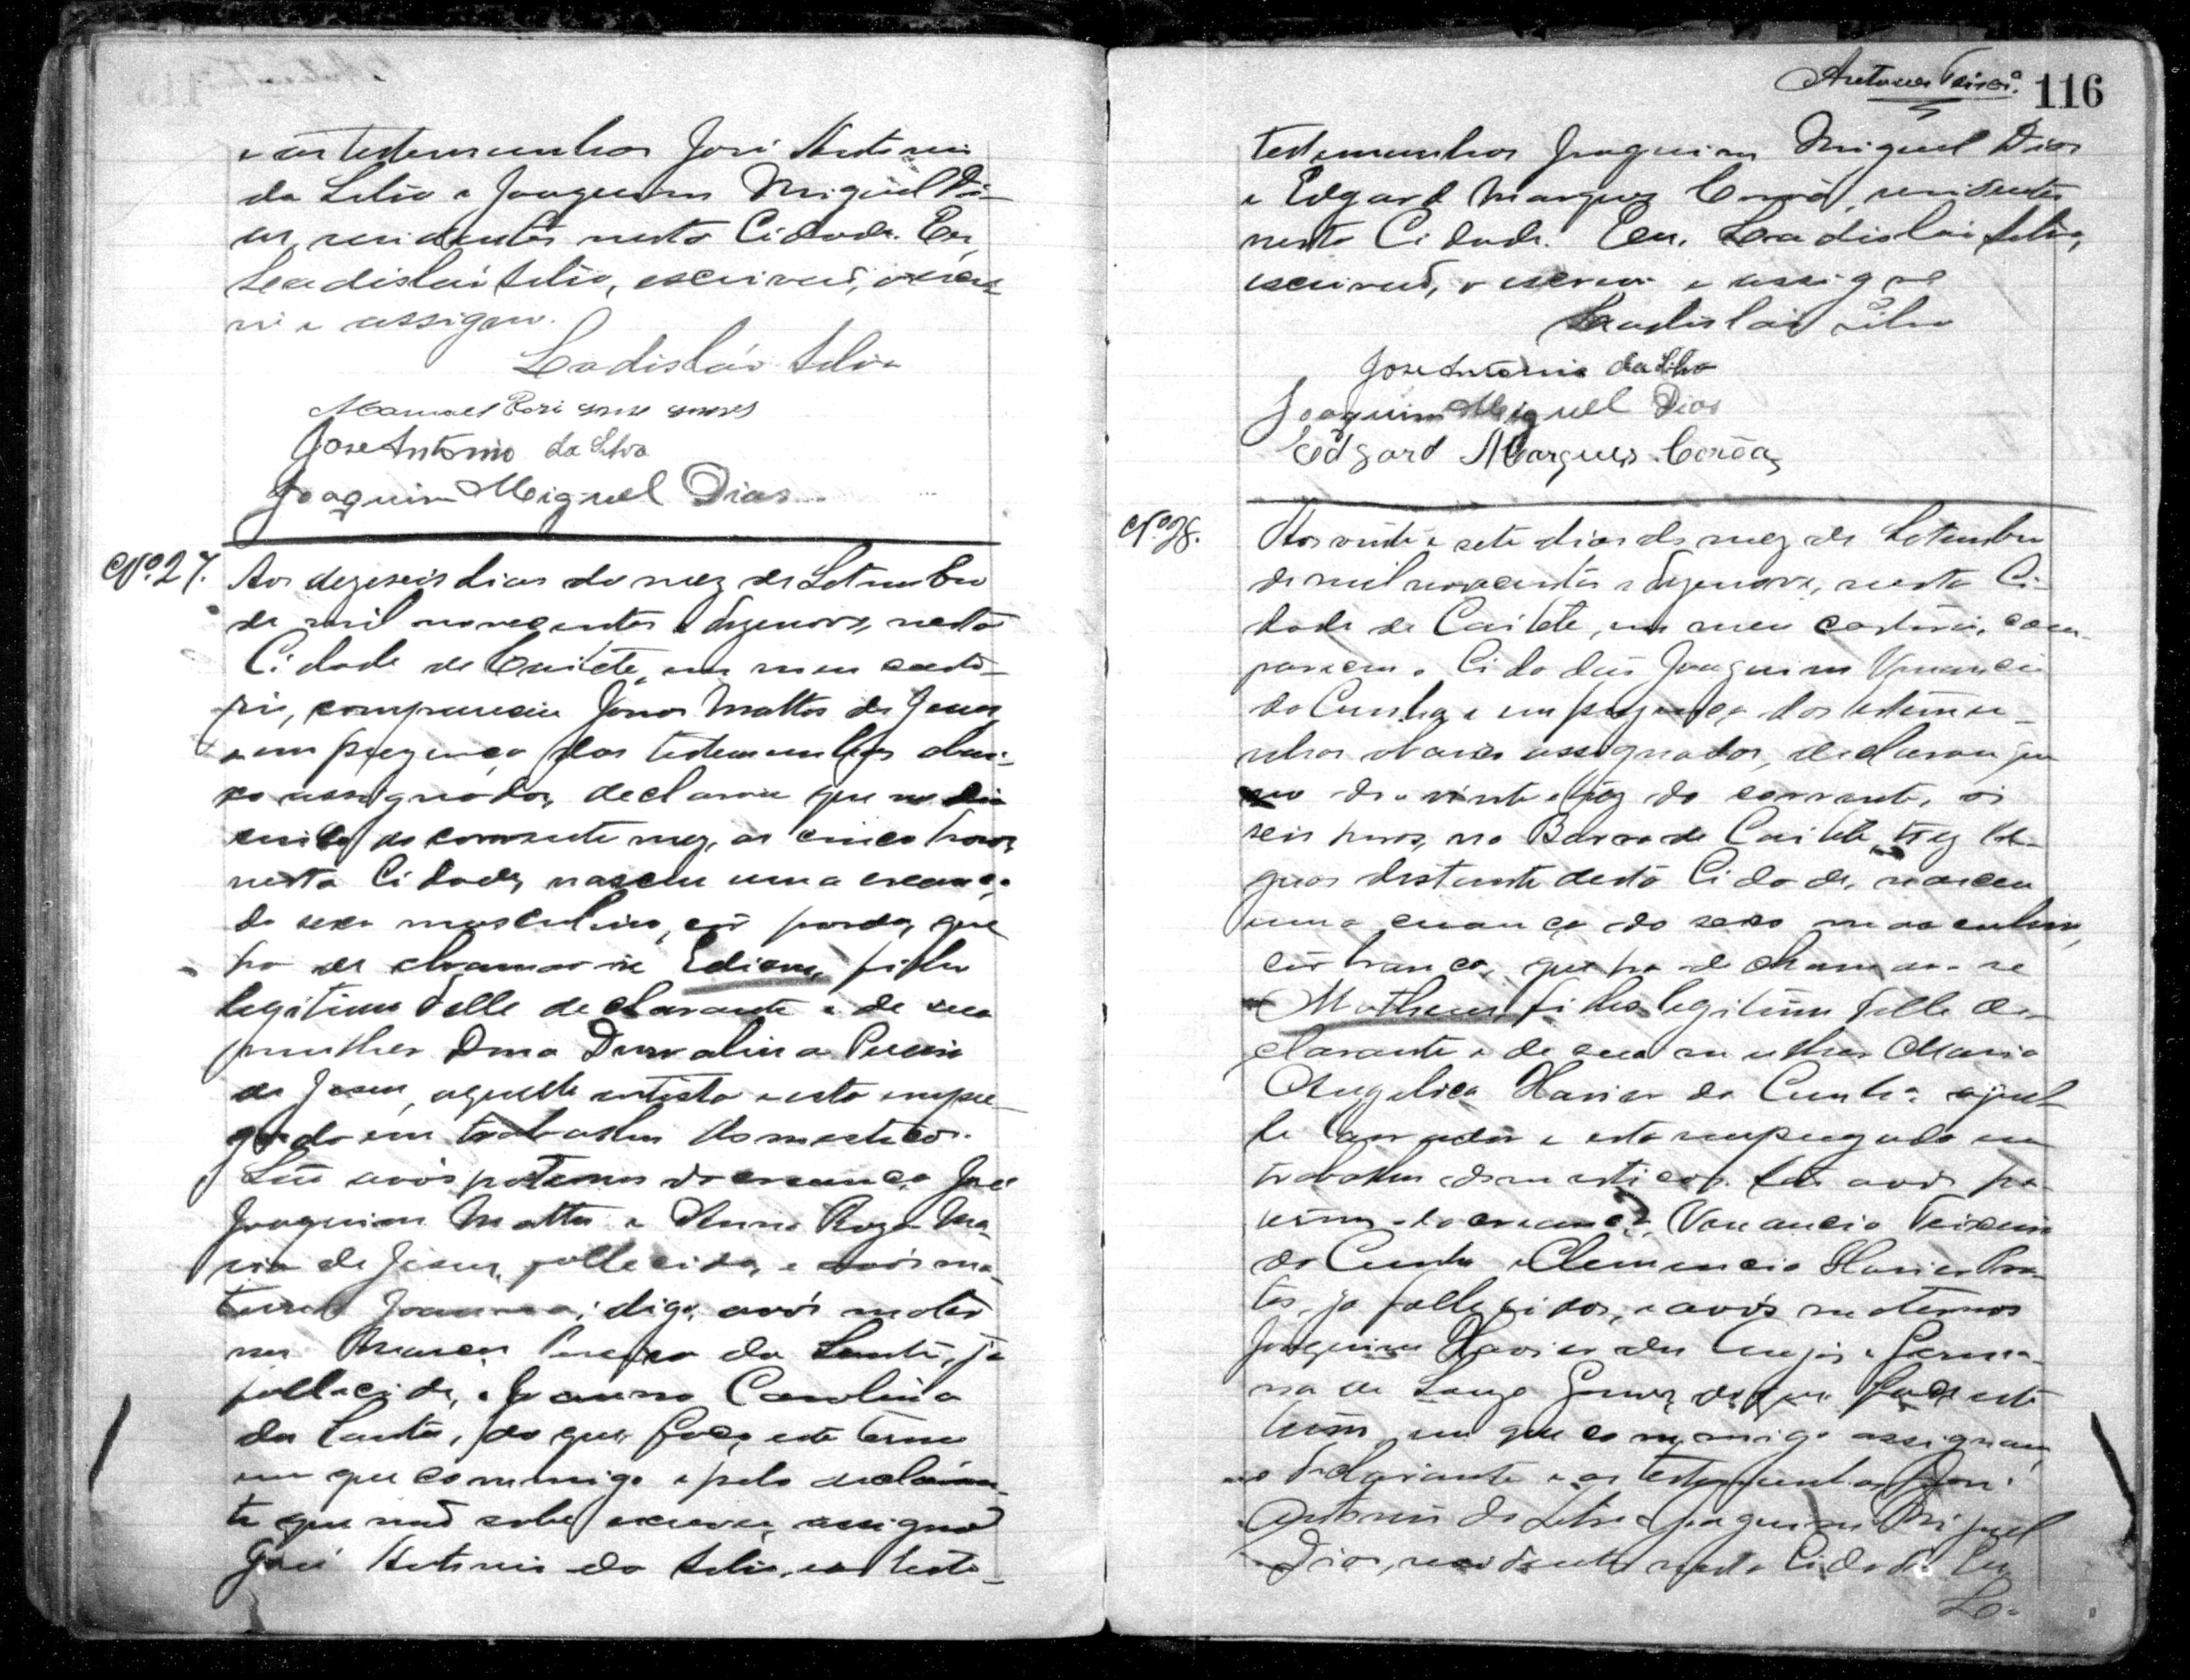 e as testemunhas José Antonio
da Silva e Joaquim Miguel Di-
as, residentes nesta Cidade. Eu,
Ladisláo Silva, escrivão, o escre-
vi e assigno.
Ladisláo Silva
Manoel
José Antonio da Silva
Joaquim Miguel Dias
Nº 27. Aos dezeseis dias do mez de Setembro
de mil novecentos e dezenove, nesta
Cidade de Caiteté, em meu carto-
rio, compareceu Jonas Mattos de Jesus
e em prezença das testemunhas abai-
xo assignadas, declarou que no dia
do corrente mez, as cinco horas,
nesta Cidade, nasceu uma creança
do sexo masculino, côr parda, que
ha de chamar-se Edison, filho
legitimo delle declarante e de sua
mulher Dona Durvalina Pereira
de Jesus, aquelle artista e esta empre-
gada em trabalhos domesticos.
São avós paternos da creança José
Joaquim Mattos e Anna Roza Ma-
ria de Jesus, fallecida, e avós ma-
ternos Joanna; digo, avós mater-
nos Pereira dos Santos, já
fallecido, e Joanna Carolina
dos Santos, do que faço este termo
em que commigo e pelo declaran-
te que não sabe escrever, assigna
José Antonio da Silva, e as teste-
Antunes 116
testemunhas Joaquim Miguel Dias
e Edgard Marques Corrêa, residentes
nesta Cidade. Eu, Ladisláo Silva,
escrivão, o escrevi e assigno
Ladisláo Silva
José Antonio da Silva
Joaquim Miguel Dias
Edgard Marques Corrêa
Nº 28. Aos vinte e sete dias do mez de Setembro
de mil novecentos e dezenove, nesta Ci-
dade de Caiteté, em meu cartorio, com-
pareceu o Cidadão Joaquim Venancio
da Cunha e em prezença das testemu-
nhas abaixo assignadas, declarou que
no dia vinte e trez do corrente, as
seis horas, na Barra de Caiteté, trez le-
guas distante desta Cidade, nasceu
uma creança do sexo masculino,
côr branca, que ha de chamar-se
Matheus, filho legitimo delle de-
clarante e de sua mulher Maria
Angelica Xavier da Cunha, aquel-
le lavrador e esta empregada em
trabalhos domesticos. São avós pa-
ternos da creança, Venancio Teixeira
da Cunha e Clemencia Xavier Pra-
tes, já fallecidos, e avós maternos
Joaquim Xavier dos Anjos e Germa-
na de Souza Gomes, do que faço este
termo em que commigo assignam
o declarante e as testemunhas José
Antonio da Silva e Joaquim Miguel
Dias, residentes nesta Cidade. Eu,
La-